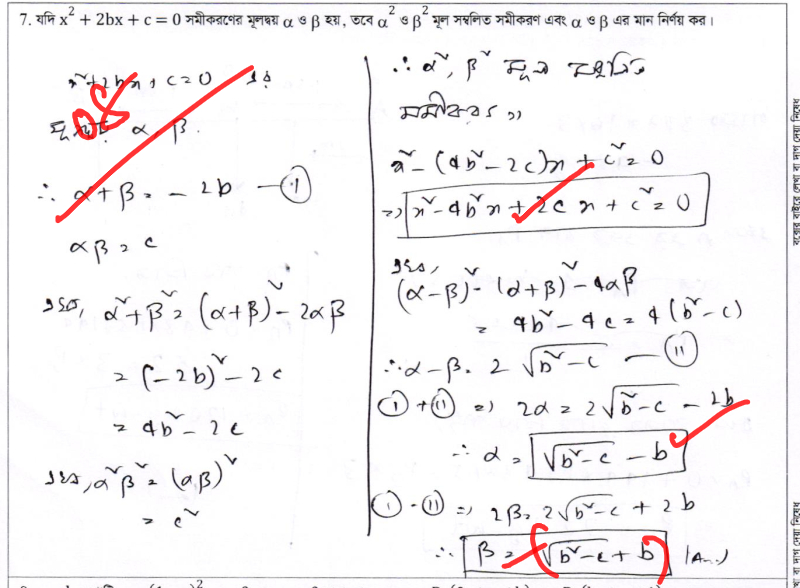 7. যদি x² + 2bx + c = 0 সমীকরণের মূলদ্বয় α ও β হয়, তবে α² ও β² মূল সম্বলিত সমীকরণ এবং α ও β এর মান নির্ণয় কর।
x² + 2bx + c = 0 এর
মূলদ্বয় α, β.
∴ α + β = - 2b — (i)
αβ = c
এখন, α² + β² = (α + β)² - 2αβ
= (-2b)² - 2c
= 4b² - 2c
এখন, α²β² = (αβ)²
= c²
∴ α², β² মূল সম্বলিত
সমীকরণ,
x² - (4b² - 2c)x + c² = 0
=> x² - 4b²x + 2cx + c² = 0
এখন,
(α - β)² = (α + β)² - 4αβ
= 4b² - 4c = 4(b² - c)
∴ α - β = 2√(b² - c) — (ii)
(i) + (ii) => 2α = 2√(b² - c) - 2b
∴ α = √(b² - c) - b
(i) - (ii) => 2β = 2√(b² - c) + 2b
∴ β = -(√(b² - c) + b) (Ans.)
বক্সের বাইরে লেখা বা দাগ দেয়া নিষেধ